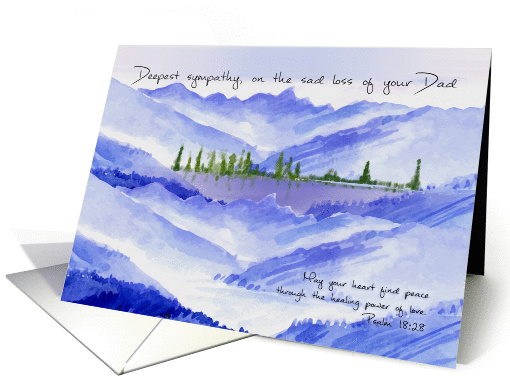 Deepest sympathy, on the sad loss of your Dad
May your heart find peace
through the healing power of love.
Psalm 18:28